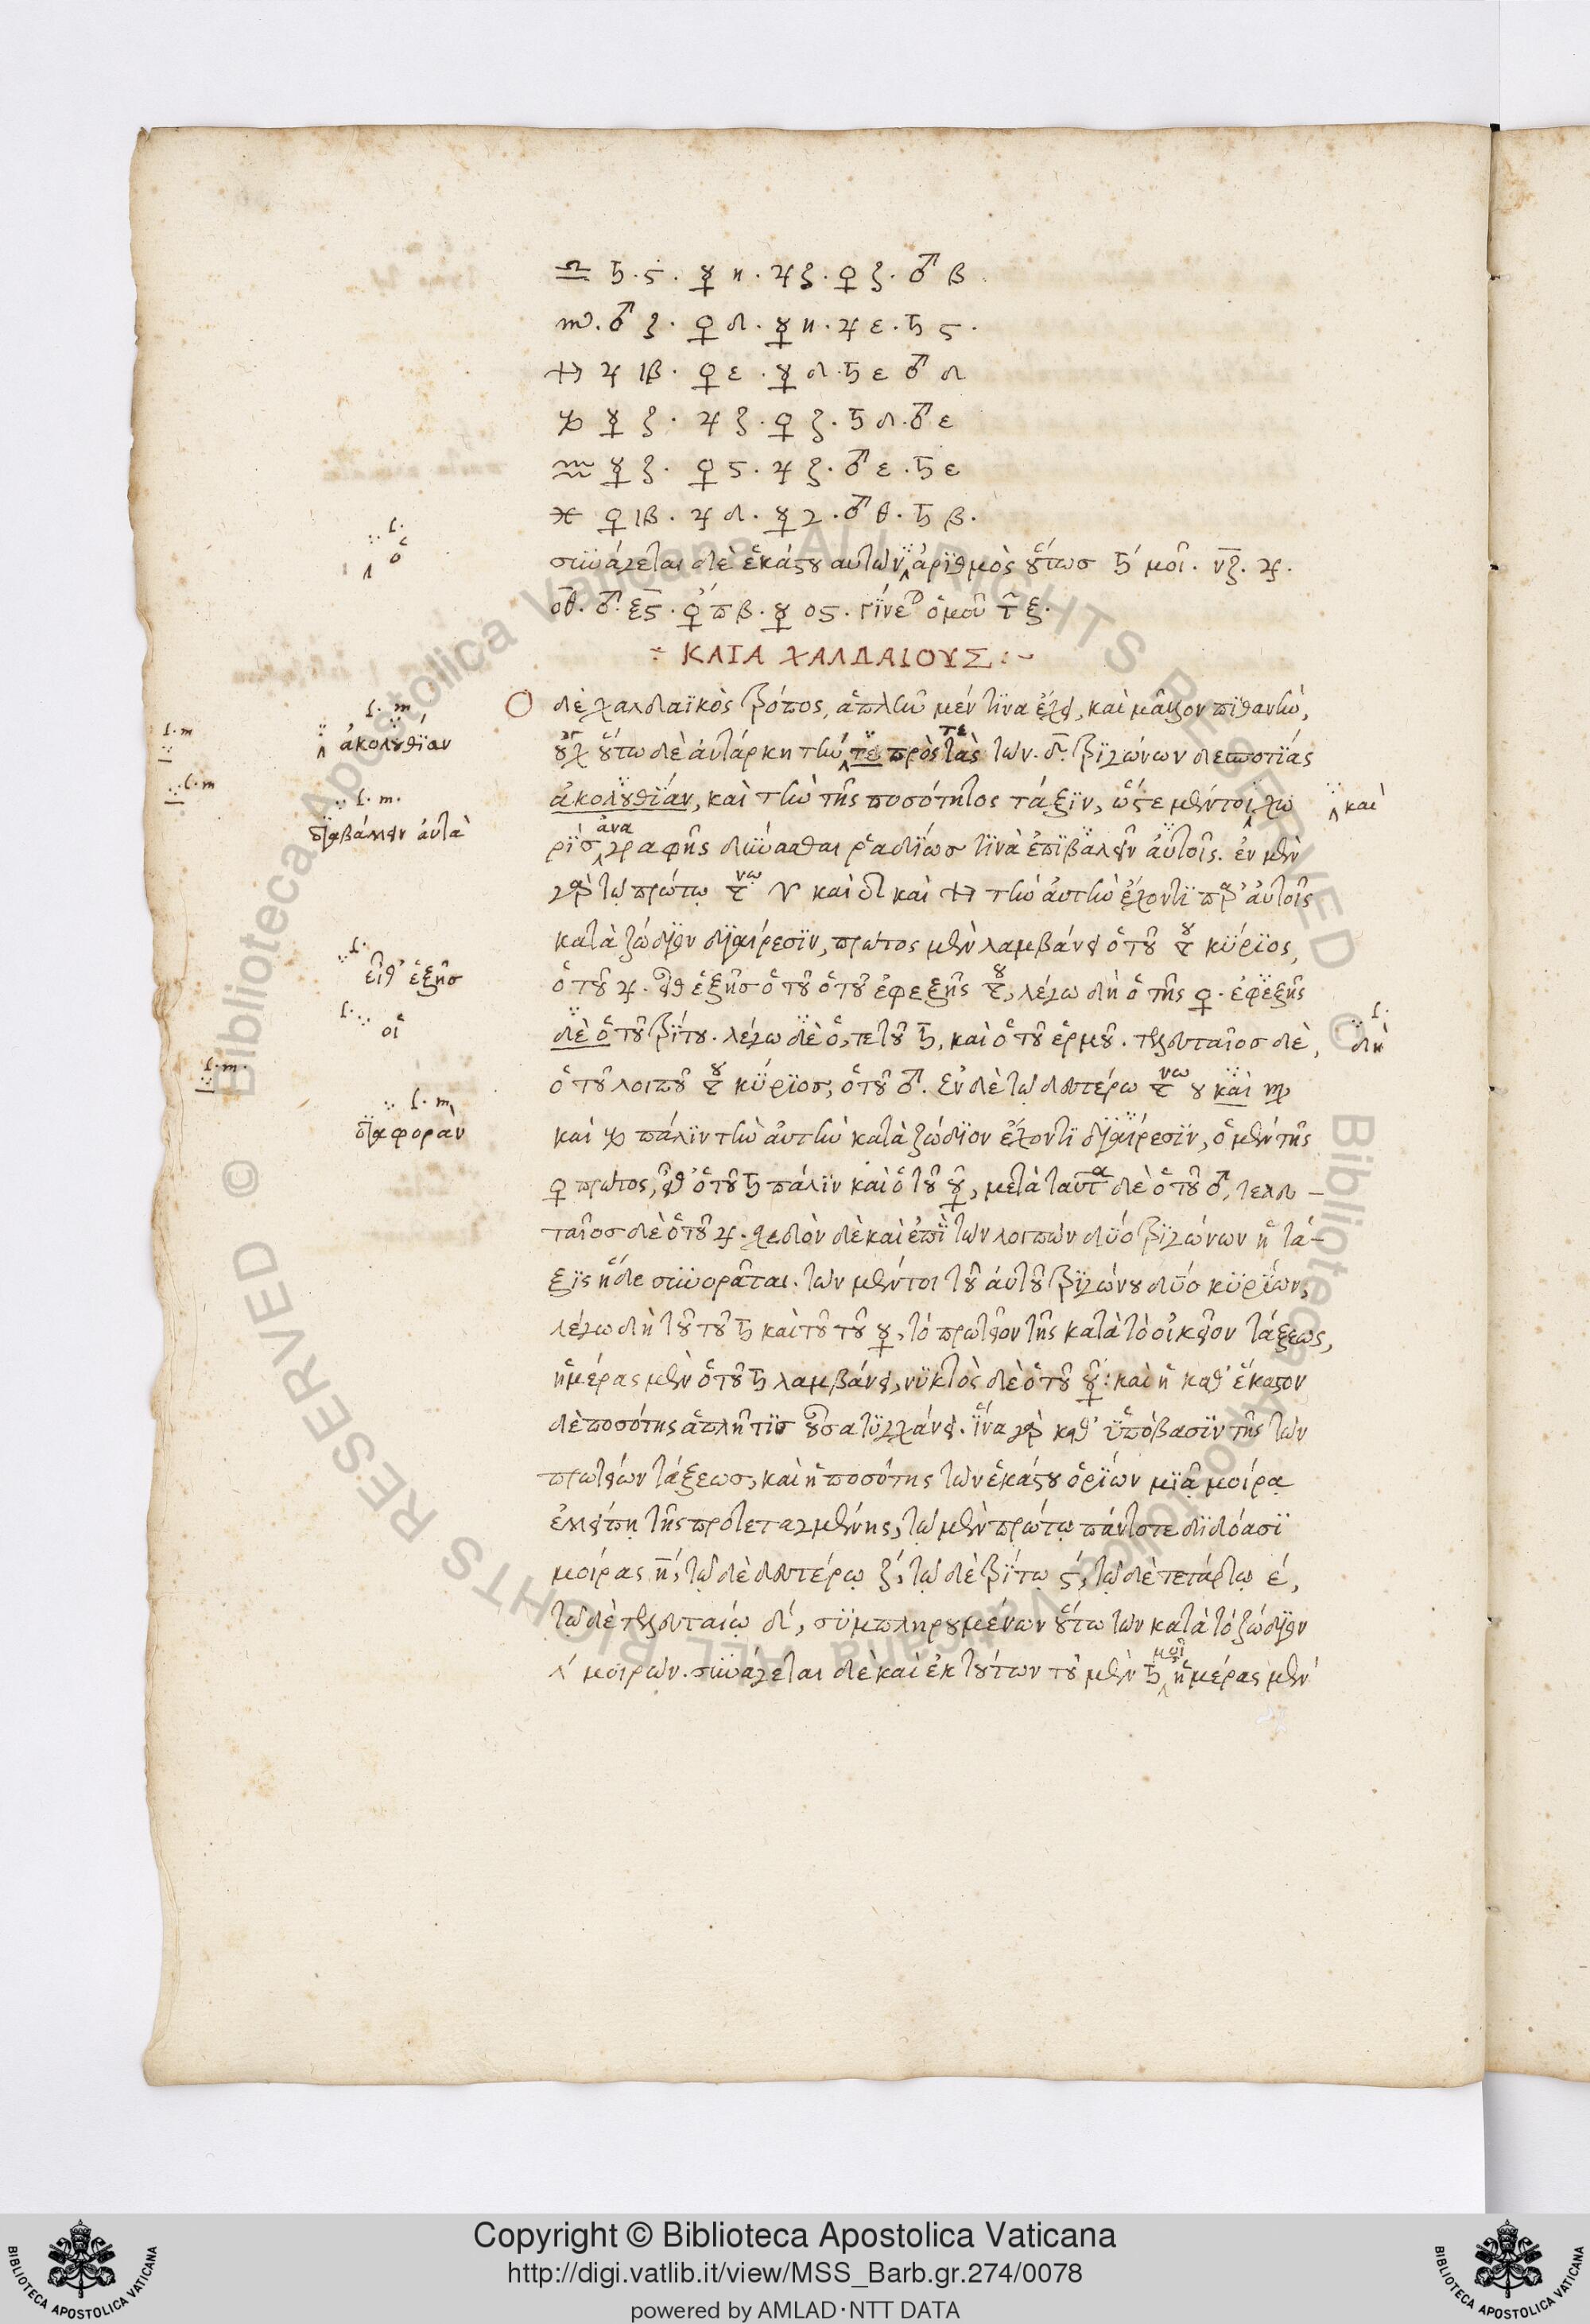 ♎ ♄ · ϛ · ☿ η · ♃ ζ · ♀ ζ · ♂ β
♏ · ♂ ζ · ♀ δ · ☿ η · ♃ ε · ♄ ϛ ·
♐ ♃ ιβ · ♀ ε · ☿ δ · ♄ ε ♂ δ
♑ ☿ ζ · ♃ ζ · ♀ ζ · ♄ δ · ♂ ε
♒ ☿ ζ · ♀ ϛ · ♃ ζ · ♂ ε · ♄ ε
♓ ♀ ιβ · ♃ δ · ☿ γ · ♂ θ · ♄ β ·
συνάγεται δὲ ἑκάστου αυτῶν ἀρϊθμὸς οὕτωσ ♄ μοῖ · νζ · ♃ ·
οθ · ♂ ξϛ · ♀ πβ · ☿ οϛ · γίνεται ὁμοῦ τξ ·
ΚΑΤΑ ΧΑΛΔΑΙΟΥΣ :~
Ο δὲ χαλδαϊκὸς τρόπος, ἁπλῆν μέν τϊνα ἔχει, καὶ μᾶλλον πϊθανὴν,
οὐχ οὕτω δὲ ἀυτάρκη τὴν τε πρὸς τὰς τε των · δ · τρϊγώνων δεσποτϊάς
ἀκολουθϊάν, καὶ τὴν τῆς ποσότητος τάξϊν, ὥστε μέντοι χω
ρϊσ ἀνα γραφῆς δύνασθαι ῥαδϊωσ τϊνὰ ἐπϊβαλεῖν ἀυτοῖς. ἐν μὲν
γὰρ τῳ πρώτῳ τριγώνῳ ♈ καὶ ♌ καὶ ♐ τὴν ἀυτὴν ἔχοντϊ παρ' ἀυτοῖς
κατὰ ζώδϊον δϊαίρεσϊν, πρῶτος μὲν λαμβάνει ὁ τοῦ τριγώνου κύρϊος,
ὁ τοῦ ♃ · εἶθ ἑξῆσ ὁ τοῦ ὁ τοῦ ἐφεξῆς τριγώνου, λέγω δὴ ὁ τῆς ♀ · ἐφεξῆς
δὲ ὁ τοῦ τρϊτου · λέγω δὲ ὁ, τε τοῦ ♄, καὶ ὁ τοῦ ἑρμοῦ · τελευταῖοσ δὲ,
ὁ τοῦ λοιποῦ τριγώνου κύρϊοσ, ὁ τοῦ ♂. ἐν δὲ τῳ δευτέρω τριγώνω ♉ καὶ ♍
καὶ ♑ πάλϊν τὴν ἀυτὴν κατὰ ζώδϊον ἔχοντϊ δϊαίρεσϊν, ὁ μὲν τῆς
♀ πρῶτος, εἶθ' ὁ τοῦ ♄ πάλϊν καὶ ὁ τοῦ ☿, μετὰ ταῦτα δὲ ὁ τοῦ ♂, τελευ-
ταῖοσ δὲ ὁ τοῦ ♃ · σχεδὸν δὲ καὶ ἐπϊ τῶν λοιπῶν δύο τρϊγώνων ἡ τά-
ξϊς ἥδε συνορᾶται. τῶν μέντοι τοῦ ἀυτοῦ τρϊγώνου δύο κϋρϊων,
λέγω δὴ τοῦ τοῦ ♄ καὶ τοῦ τοῦ ☿, τὸ πρωτεῖον τῆς κατὰ τὸ οἰκεῖον τάξεως,
ἡμέρας μὲν ὁ τοῦ ♄ λαμβάνει, νϋκτὸς δὲ ὁ τοῦ ☿ : καὶ ἡ καθ' ἕκαστον
δὲ ποσότης ἁπλῆ τϊσ οὖσα τυγχάνει. ἵνα γὰρ καθ' ὑπόβασϊν τῆς τῶν
πρωτείων τάξεωσ, καὶ ἡ ποσότης τῶν ἑκάστου ὁρϊων μϊᾷ μοίρᾳ
ἐλλείπῃ τῆς προτεταγμένης, τῳ μὲν πρώτῳ πάντοτε δϊδόασϊ
μοίρας η, τῳ δὲ δευτέρῳ ζ, τῳ δὲ τρϊτῳ ϛ, τῳ δὲ τετάρτῳ ε,
τῳ δὲ τελευταίῳ δ, σϋμπληρουμένων οὕτω τῶν κατὰ τὸ ζώδϊον
λ μοιρῶν. συνάγεται δὲ καὶ ἐκ τούτων τοῦ μὲν ♄ μοῖ ἡμέρας μὲν
f. ὁ
f. m
f. m ἀκολουθϊαν
f. m
f. m. δϊαβάλλειν ἀυτὰ
καὶ
f. εἶθ' ἑξῆσ
f. οἱ
f. δὴ
f. m.
f. m. δϊαφορὰν
Copyright © Biblioteca Apostolica Vaticana
http://digi.vatlib.it/view/MSS_Barb.gr.274/0078
powered by AMLAD·NTT DATA
BIBLIOTECA APOSTOLICA VATICANA
BIBLIOTECA APOSTOLICA VATICANA
Biblioteca Apostolica Vaticana ALL RIGHTS RESERVED © Biblioteca Apostolica Vaticana ALL RIGHTS RESERVED ©